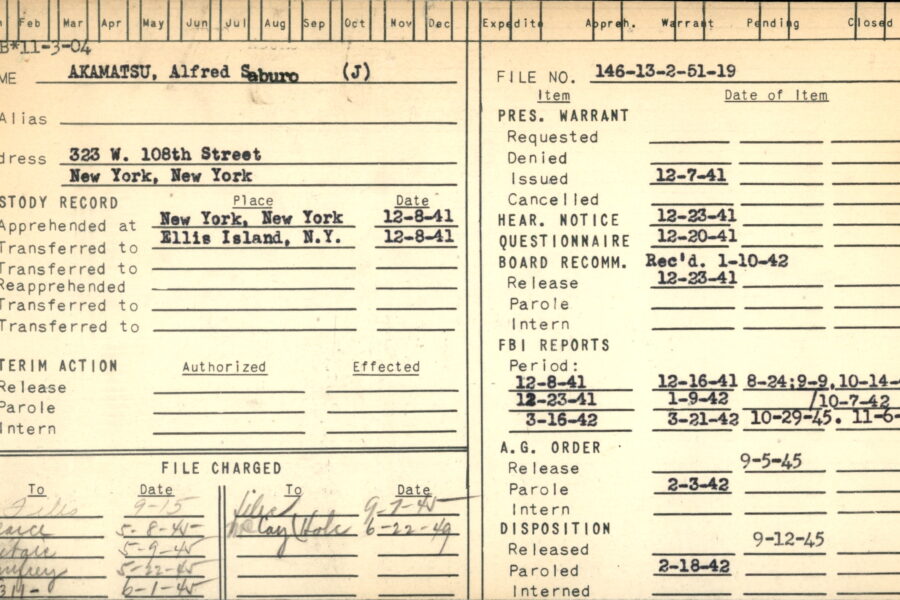 Feb Mar Apr May Jun Jul Aug Sep Oct Nov Dec Expedite Appreh. Warrant Pending Closed
B*11-3-04
ME AKAMATSU, Alfred Saburo (J)
Alias
dress 323 W. 108th Street
New York, New York
STODY RECORD Place Date
Apprehended at New York, New York 12-8-41
Transferred to Ellis Island, N.Y. 12-8-41
Transferred to
Reapprehended
Transferred to
Transferred to
TERIM ACTION Authorized Effected
Release
Parole
Intern
FILE CHARGED
To Date To Date
Files 9-15 files 9-7-45
5-8-45 McCoy (Hole 6-22-49
5-9-45
5-22-45
311- 6-1-45
FILE NO. 146-13-2-51-19
Item Date of Item
PRES. WARRANT
Requested
Denied
Issued 12-7-41
Cancelled
HEAR. NOTICE 12-23-41
QUESTIONNAIRE 12-20-41
BOARD RECOMM. Rec'd. 1-10-42
Release 12-23-41
Parole
Intern
FBI REPORTS
Period:
12-8-41 12-16-41 8-24;9-9,10-14-
12-23-41 1-9-42 /10-7-42
3-16-42 3-21-42 10-29-45. 11-6-
A.G. ORDER
Release 9-5-45
Parole 2-3-42
Intern
DISPOSITION
Released 9-12-45
Paroled 2-18-42
Interned